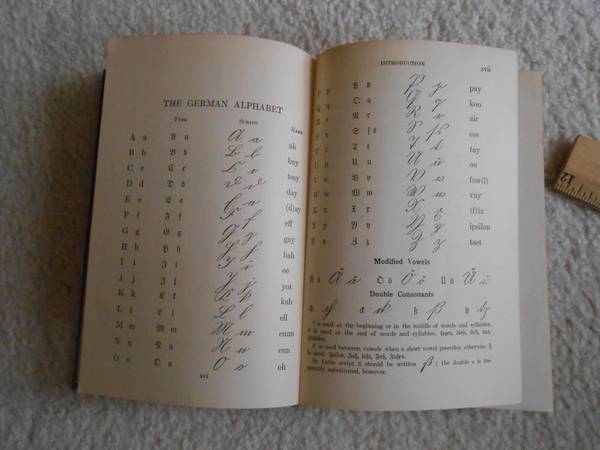 THE GERMAN ALPHABET
TYPE SCRIPT NAME
A a 𝔄 a A a ah
B b 𝔅 b B b bay
C c ℭ c C c tsay
D d 𝔇 d D d day
E e 𝔈 e E e (d)ay
F f 𝔉 f F f eff
G g 𝔊 g G g gay
H h ℌ h H h hah
I i ℑ i I i ee
J j 𝔍 j J j yot
K k 𝔎 k K k kah
L l 𝔏 l L l ell
M m 𝔐 m M m emm
N n 𝔑 n N n enn
O o 𝔒 o O o oh
xvi
INTRODUCTION xvii
P p 𝔓 p P p pay
Q q 𝔔 q Q q koo
R r ℜ r R r air
S s 𝔖 ſ s S ſ s ess
T t 𝔗 t T t tay
U u 𝔘 u U u oo
V v 𝔙 v V v fow(l)
W w 𝔚 w W w vay
X x 𝔛 x X x (f)ix
Y y 𝔜 y Y y ipsilon
Z z ℨ z Z z tset
Modified Vowels
Ä ä Ä ä Ö ö Ö ö Ü ü Ü ü
Double Consonants
ch ch ck ck ß ß tz tz
ſ is used at the beginning or in the middle of words and syllables.
s is used at the end of words and syllables:
ſſ is used between vowels when a short vowel precedes, otherwise ß
is used:
In Latin script it should be written ß; the double s is frequently substituted, however.